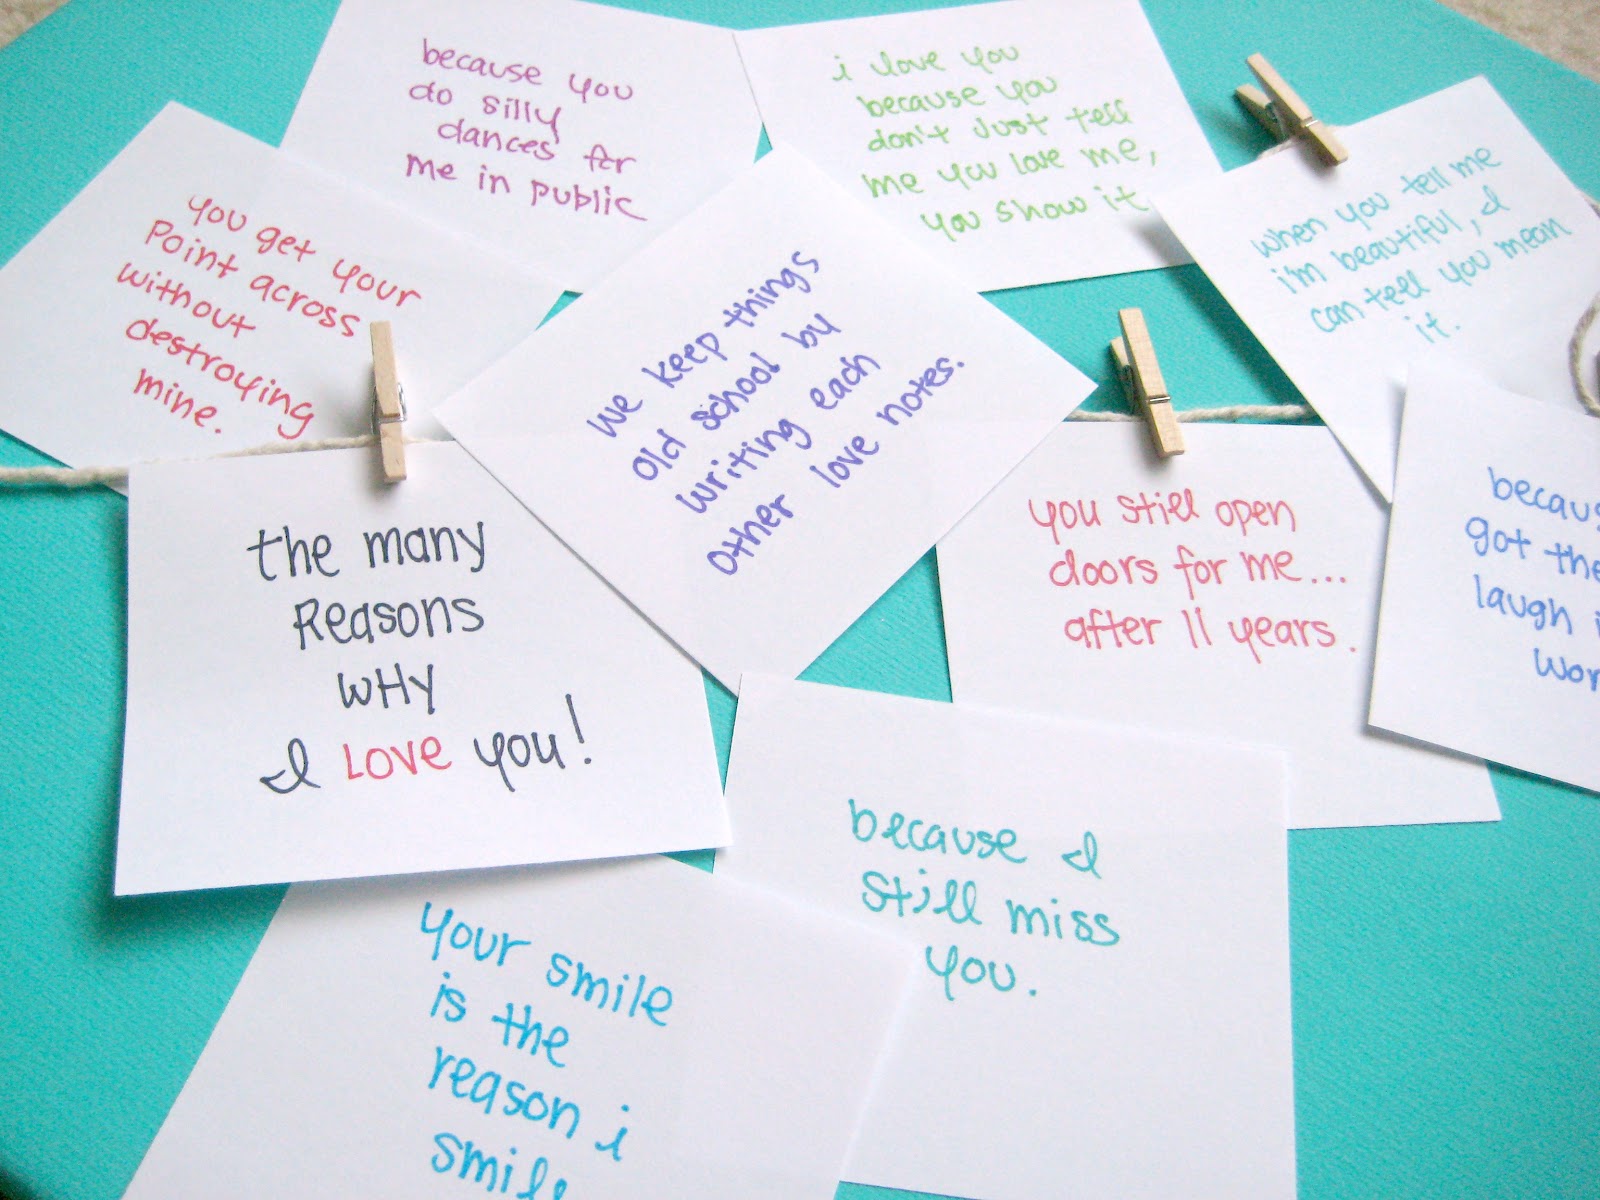 because you
do silly
dances for
me in public
i love you
because you
don't just tell
me you love me,
you show it
when you tell me
i'm beautiful, I
can tell you mean
it.
you get your
Point across
without
destroying
mine.
We keep things
old school by
writing each
other love notes.
the many
Reasons
WHY
I LOVE you!
you still open
doors for me...
after 11 years.
got
laugh
because I
still miss
you.
your smile
is the
reason i
smile